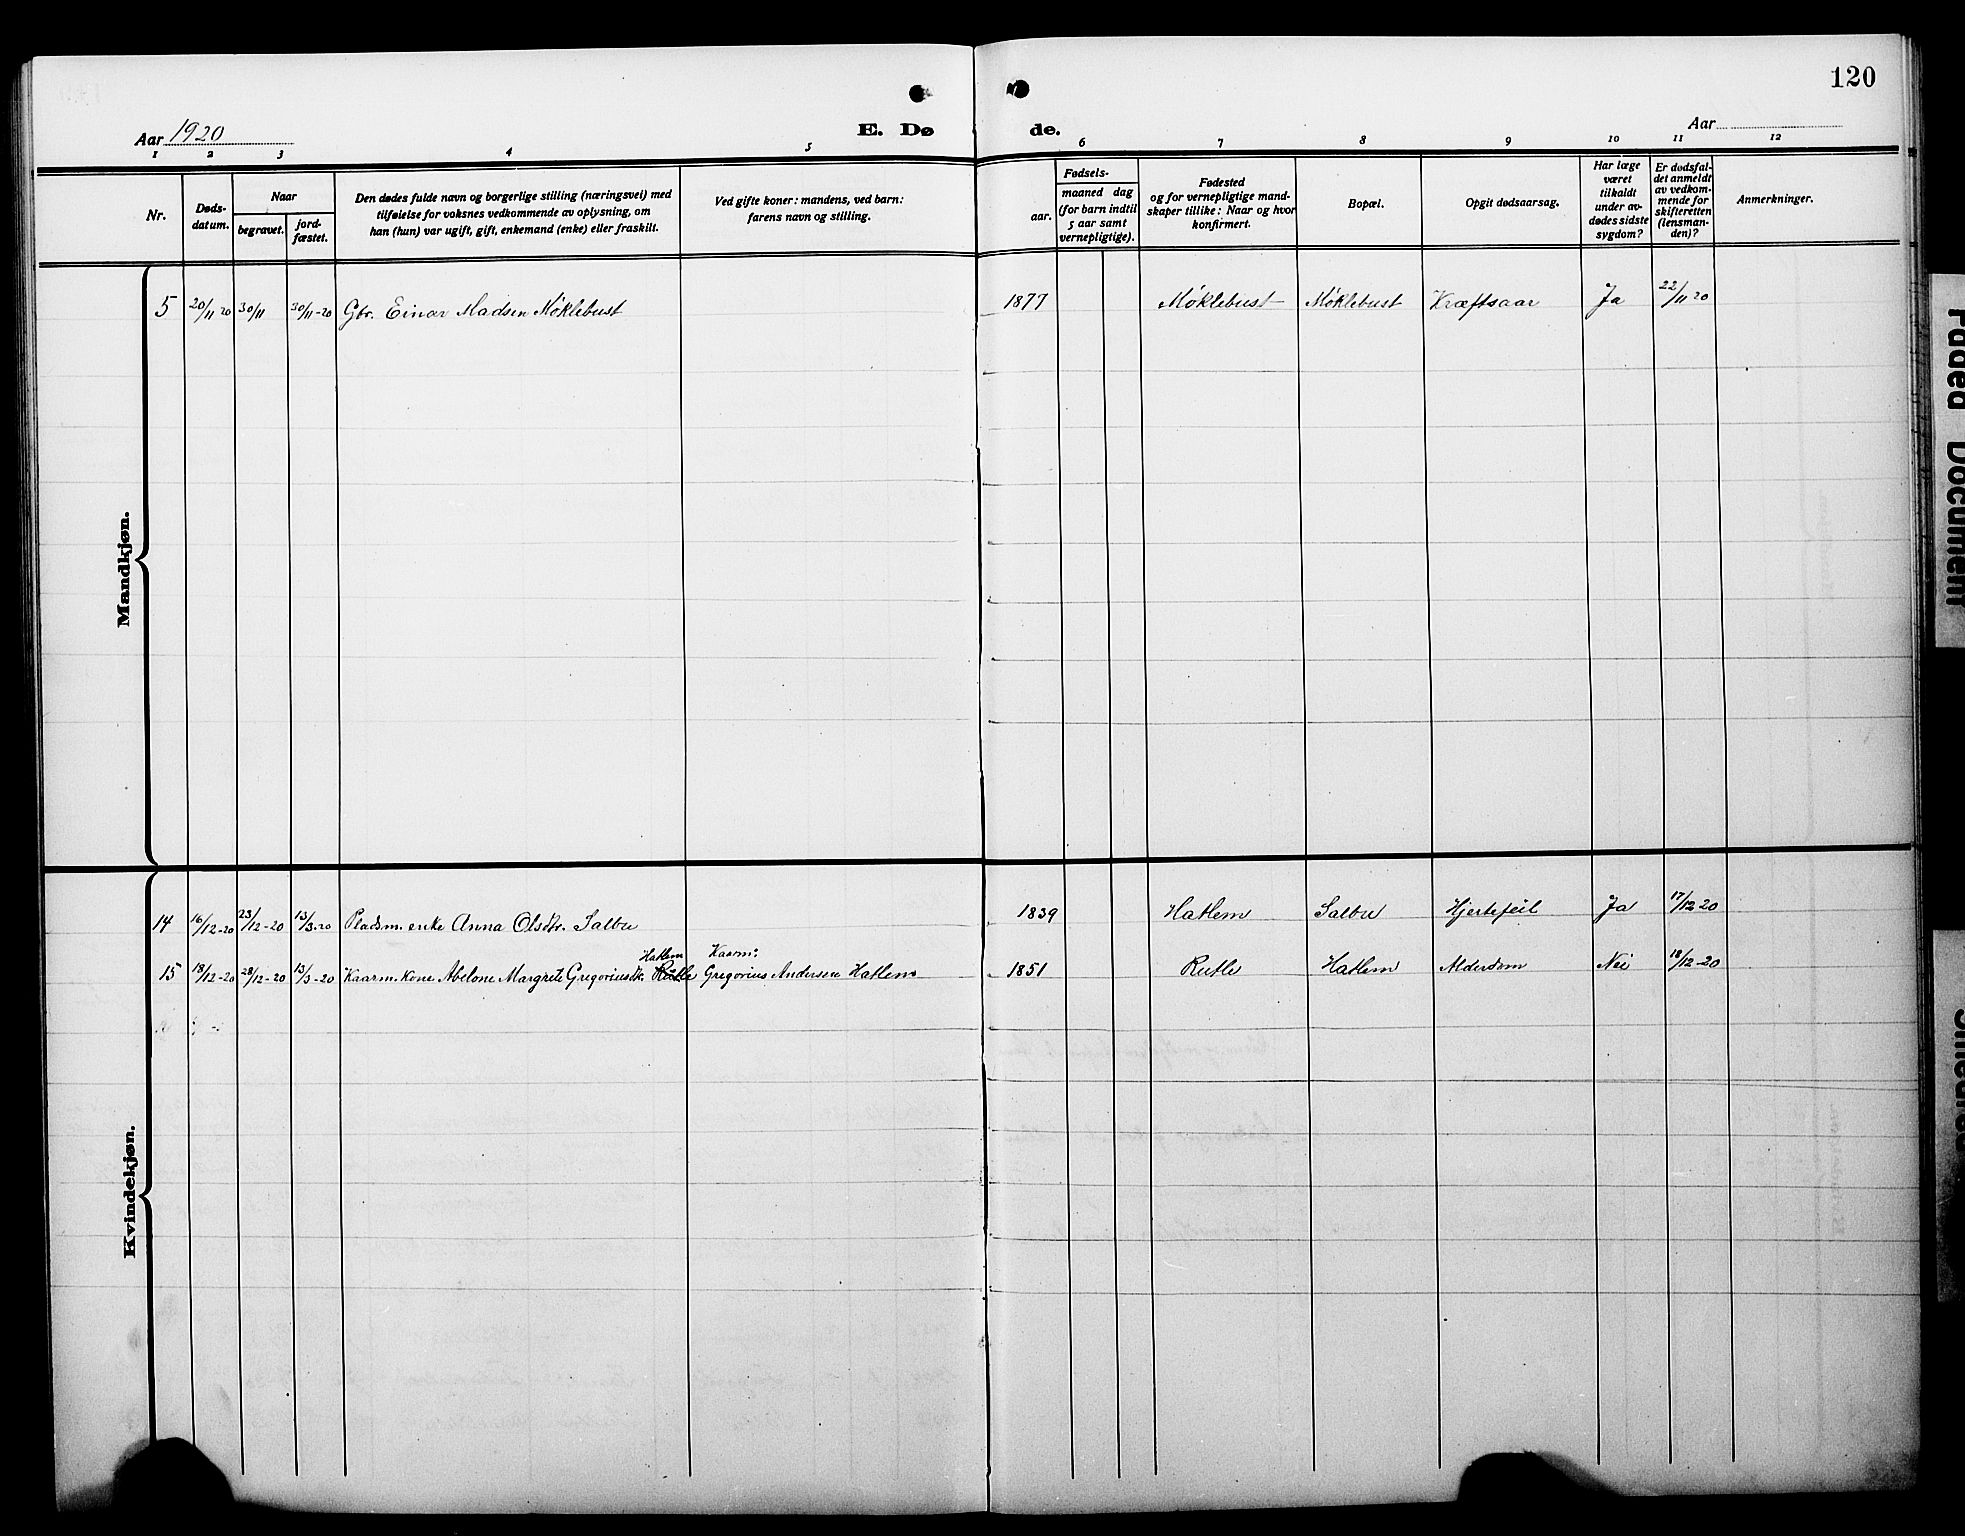 120
Aar 1920 E. Dø de. Aar
1 2 3 4 5 6 7 8 9 10 11 12
Nr.
Døds-
datum.
Naar
begravet.
jord-
fæstet.
Den dødes fulde navn og borgerlige stilling (næringsvei) med
tilføielse for voksnes vedkommende av oplysning, om
han (hun) var ugift, gift, enkemand (enke) eller fraskilt.
Ved gifte koner: mandens, ved barn:
farens navn og stilling.
Fødsels-
aar.
maaned dag
(for barn indtil
5 aar samt
vernepligtige).
Fødested
og for vernepligtige mand-
skaper tillike: Naar og hvor
konfirmert.
Bopæl.
Opgit dødsaarsag.
Har læge
været
tilkaldt
under av-
dødes sidste
sygdom?
Er dødsfal-
det anmeldt
av vedkom-
mende for
skifteretten
(lensman-
den)?
Anmerkninger.
Mandkjøn.
5 20/11 20 30/11 30/11-20 Gbr. Einar Madsen Møklebust 1877 Møklebust Møklebust Kræftsaar Ja 22/11 20
Kvindekjøn.
14 16/12-20 23/12-20 13/3-20 Pladsm. enke Anna Olsdtr. Salbu 1839 Hatlem Salbu Hjertefeil Ja 17/12 20
Hatlem Kaarm:
15 18/12-20 28/12-20 13/3-20 Kaarm. kone Abelone Margrete Gregoriusdtr. Rutle Gregorius Andersen Hatlem 1851 Rutle Hatlem Alderdom Nei 18/12-20
Faded Document